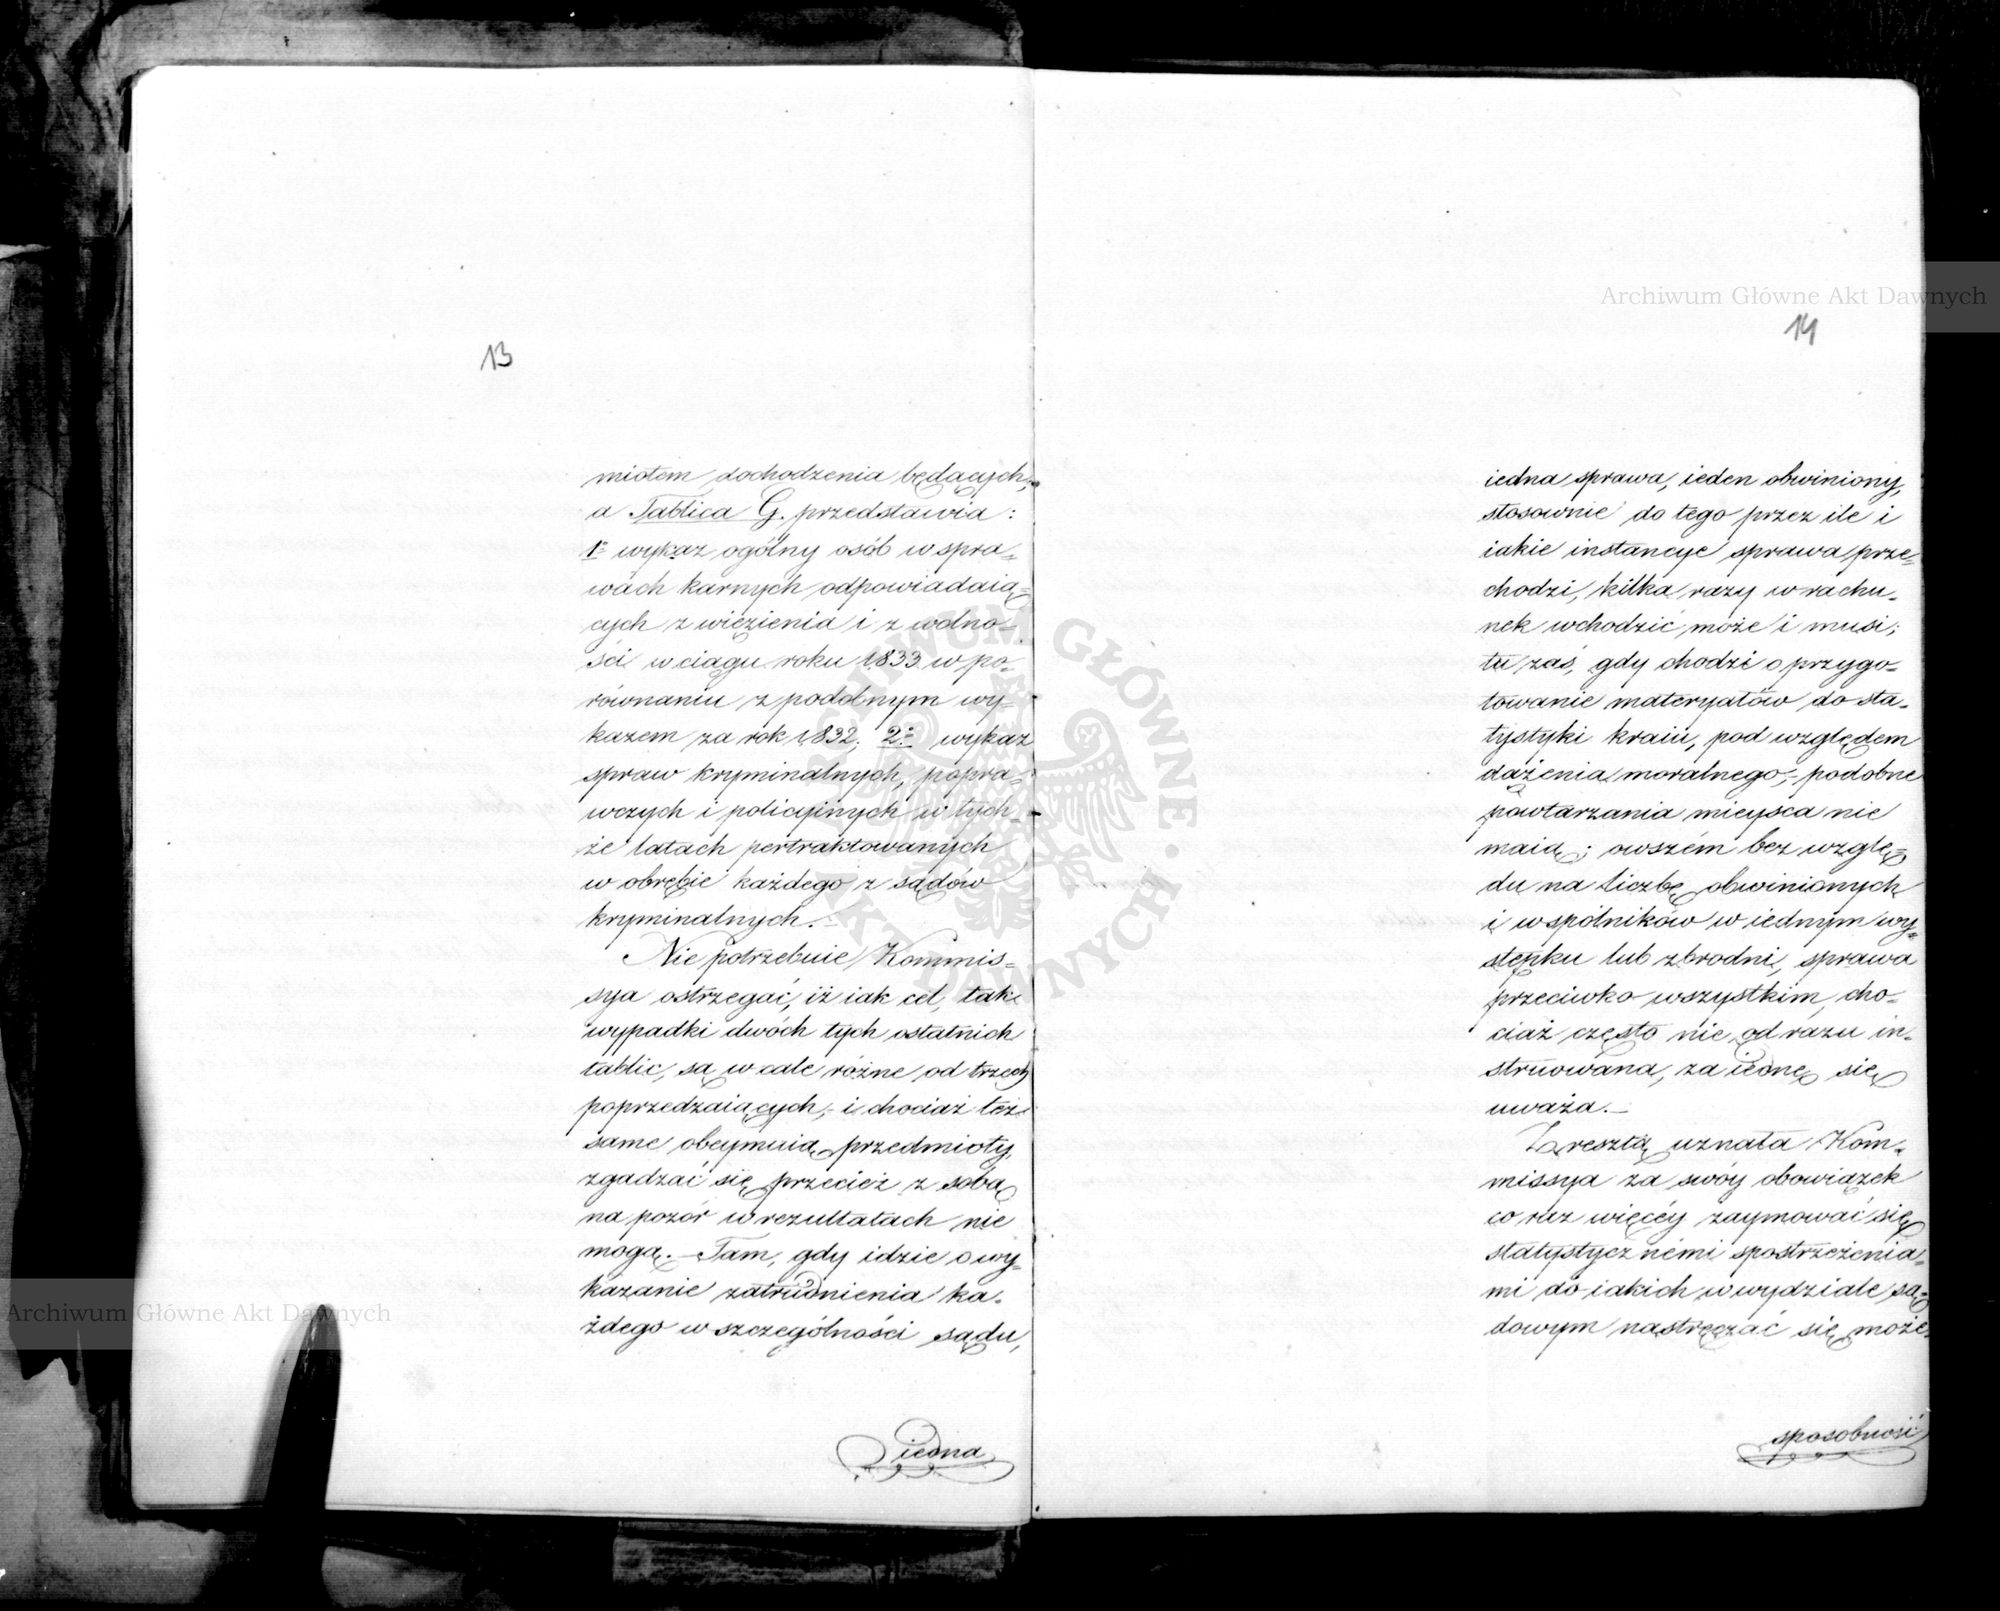 13
miotem dochodzenia będących,
a Tablica G. przedstawia:
1º wykaz ogólny osób w spra-
wach karnych odpowiadaią-
cych z więzienia i z wolno-
ści w ciągu roku 1833 w po-
równaniu z podobnym wy-
kazem za rok 1832; 2º wykaz
spraw kryminalnych, popra-
wczych i policyinych w tych-
że latach pertraktowanych
w obrębie każdego z sądów
kryminalnych.-
Nie potrzebuie Kommis-
sya ostrzegać, iż iak cel, tak
wypadki dwóch tych ostatnich
tablic, są w cale różne od trzech
poprzedzaiących; i chociaż też
same obeymuią przedmioty,
zgadzać się przecież z sobą
na pozór w rezultatach nie
mogą.- Tam, gdy idzie o wy-
kazanie zatrudnienia ka-
żdego w szczególności sądu,
iedna
14
iedna sprawa, ieden obwiniony,
stosownie do tego przez ile i
iakie instancye sprawa prze-
chodzi, kilka razy w rachu-
nek wchodzić może i musi;
tu zaś, gdy chodzi o przygo-
towanie materyałów do sta-
tystyki kraiu, pod względem
dążenia moralnego,- podobne
powtarzania mieysca nie
maią; owszém bez wzglę-
du na liczbę obwinionych
i wspólników w iednym wy-
stępku lub zbrodni, sprawa
przeciwko wszystkim, cho-
ciaż często nie od razu in-
struowana, za iednę się
uważa.-
Zresztą uznała Kom-
missya za swóy obowiązek
co raz więcéy zaymować się
statystycznémi spostrzeżenia-
mi do iakich w wydziale są-
dowym nastręczać się może
sposobność
Archiwum Główne Akt Dawnych
Archiwum Główne Akt Dawnych
ARCHIWUM GŁÓWNE · AKT DAWNYCH ·